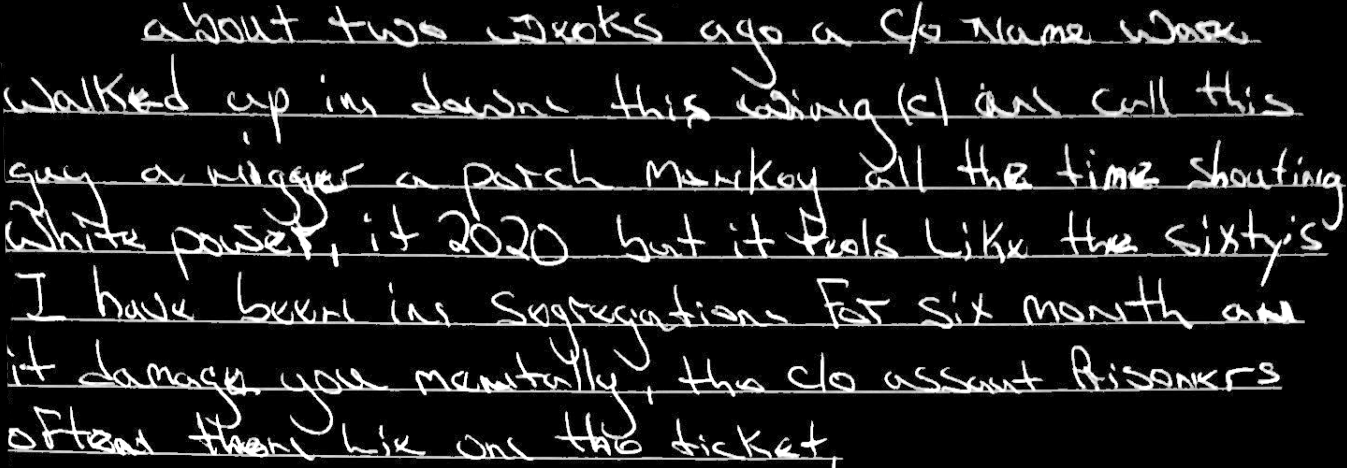 about two weeks ago a c/o Name
walked up in down this wing (c) and call this
guy a nigger a porch Monkey all the time shouting
White power, it 2020 but it feels Like the sixty's
I have been in segregation For six month an
it damage you mentally, the c/o assaut Prisoners
oFten then Lie on the ticket.